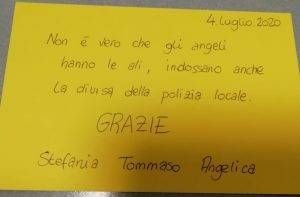 4 Luglio 2020
Non é vero che gli angeli
hanno le ali, indossano anche
la divisa della polizia locale.
GRAZIE
Stefania Tommaso Angelica